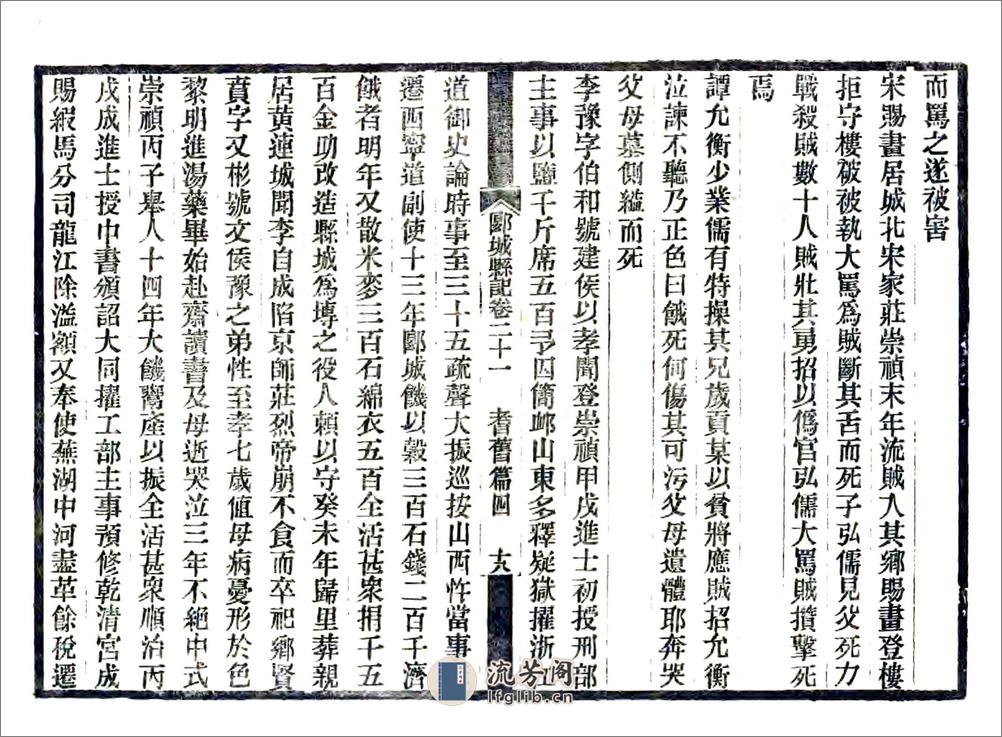 而罵之遂被害
宋賜畫居城北宋家莊崇禎末年流賊入其鄉賜畫登樓
拒守樓破被執大罵爲賊斷其舌而死子弘儒見父死力
戰殺賊數十人賊壯其勇招以僞官弘儒大罵賊攢擊死
焉
譚允衡少業儒有特操其兄歲貢某以貧將應賊招允衡
泣諫不聽乃正色曰餓死何傷其可污父母遺體耶奔哭
父母墓側縊而死
李豫字伯和號建侯以孝聞登崇禎甲戌進士初授刑部
主事以鹽千斤席五百予四簡邮山東多釋疑獄擢浙江
郾城縣記卷二十一 耆舊篇四 十九
道御史論時事至三十五疏聲大振巡按山西忤當事
遷西寧道副使十三年郾城饑以穀三百石錢二百千濟
餓者明年又散米麥三百石綿衣五百全活甚衆捐千五
百金助改造縣城爲塼之役人賴以守癸未年歸里葬親
居黃連城聞李自成陷京師莊烈帝崩不食而卒祀鄉賢
賁字又彬號文侯豫之弟性至孝七歲值母病憂形於色
黎明進湯藥畢始赴齋讀書及母逝哭泣三年不絶中式
崇禎丙子舉人十四年大饑鬻產以振全活甚衆順治丙
戌成進士授中書頒詔大同擢工部主事預修乾清宮成
賜緞馬分司龍江除濫額又奉使蕪湖中河盡革餘稅遷
流芳阁
lfglib.cn